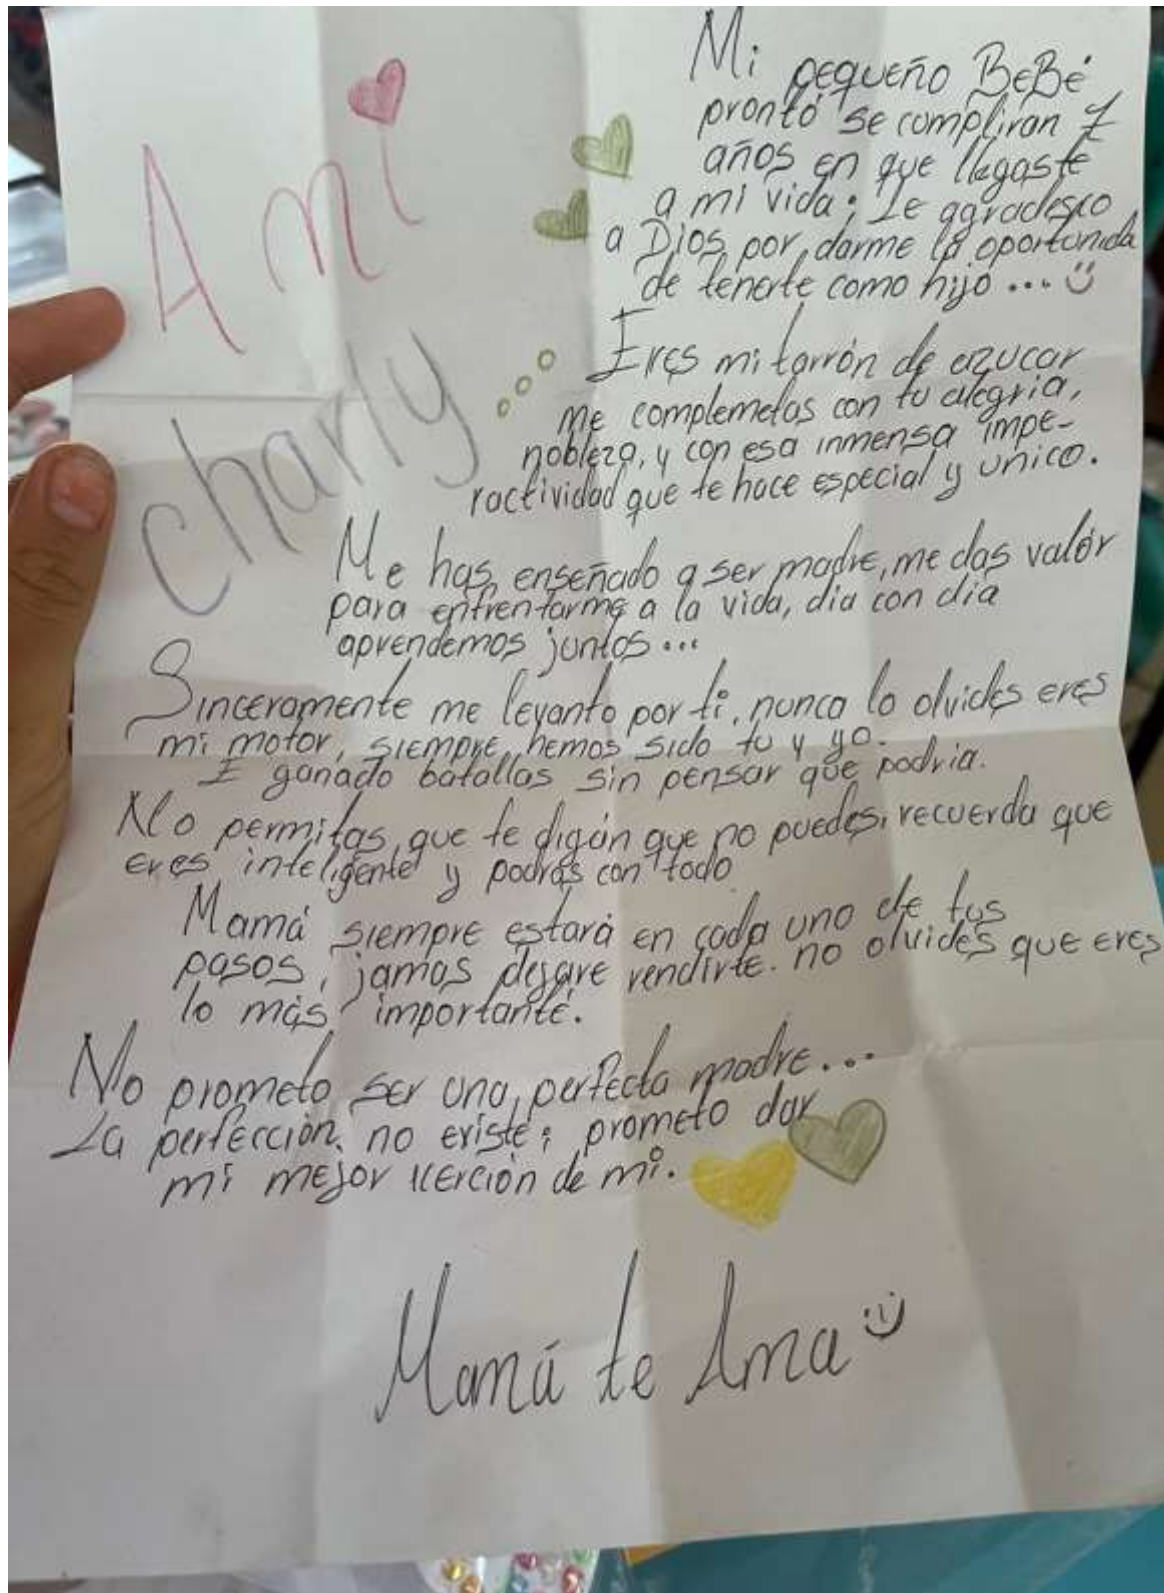 A mi
Charly...
Mi pequeño BeBé
pronto se cumpliran 7
años en que llegaste
a mi vida; Le agradesco
a Dios por darme la oportunida
de tenerte como hijo ...
Eres mi tarrón de azucar
me complemetas con tu alegria,
nobleza, y con esa inmensa impe-
ractividad que te hace especial y unico.
Me has enseñado a ser madre, me das valor
para enfrentarme a la vida, dia con dia
aprendemos juntos ...
Sinceramente me levanto por ti, nunca lo olvides eres
mi motor, siempre hemos sido tu y yo.
E ganado batallas sin pensar que podria.
No permitas que te digan que no puedes, recuerda que
eres inteligente y podrás con todo
Mamá siempre estará en cada uno de tus
pasos, jamas dejare rendirte. no olvides que eres
lo más importante.
No prometo ser una perfecta madre...
La perfección no existe; prometo dar
mi mejor verción de mi.
Mamá te Ama